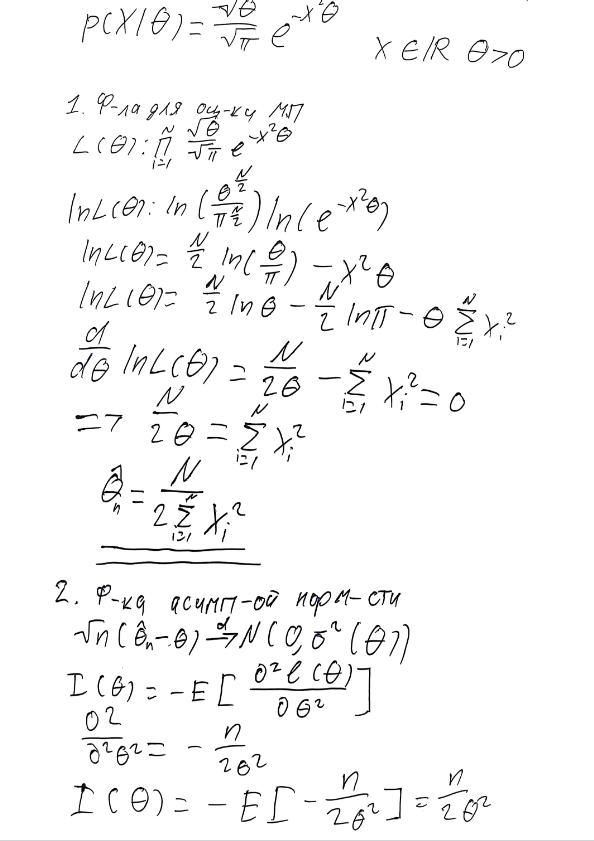 P(X/θ) = √θ/√π e^(-x²θ) X ∈ ℝ θ>0
1. Ф-ла для оц-ки МП
L(θ): ∏_{i=1}^{N} √θ/√π e^(-x²θ)
lnL(θ): ln(θ^(N/2)/π^(N/2)) ln(e^(-x²θ))
lnL(θ) = N/2 ln(θ/π) - x²θ
lnL(θ) = N/2 lnθ - N/2 lnπ - θ ∑_{i=1}^{N} x_i²
d/dθ lnL(θ) = N/2θ - ∑_{i=1}^{N} x_i² = 0
=> N/2θ = ∑_{i=1}^{N} x_i²
θ̂_n = N/(2∑_{i=1}^{N} x_i²)
2. Ф-ка асимп-ой норм-сти
√n(θ̂_n - θ) →^d N(0, σ²(θ))
I(θ) = -E[∂²ℓ(θ)/∂θ²]
∂²/∂²θ² = - n/2θ²
I(θ) = -E[-n/2θ²] = n/2θ²